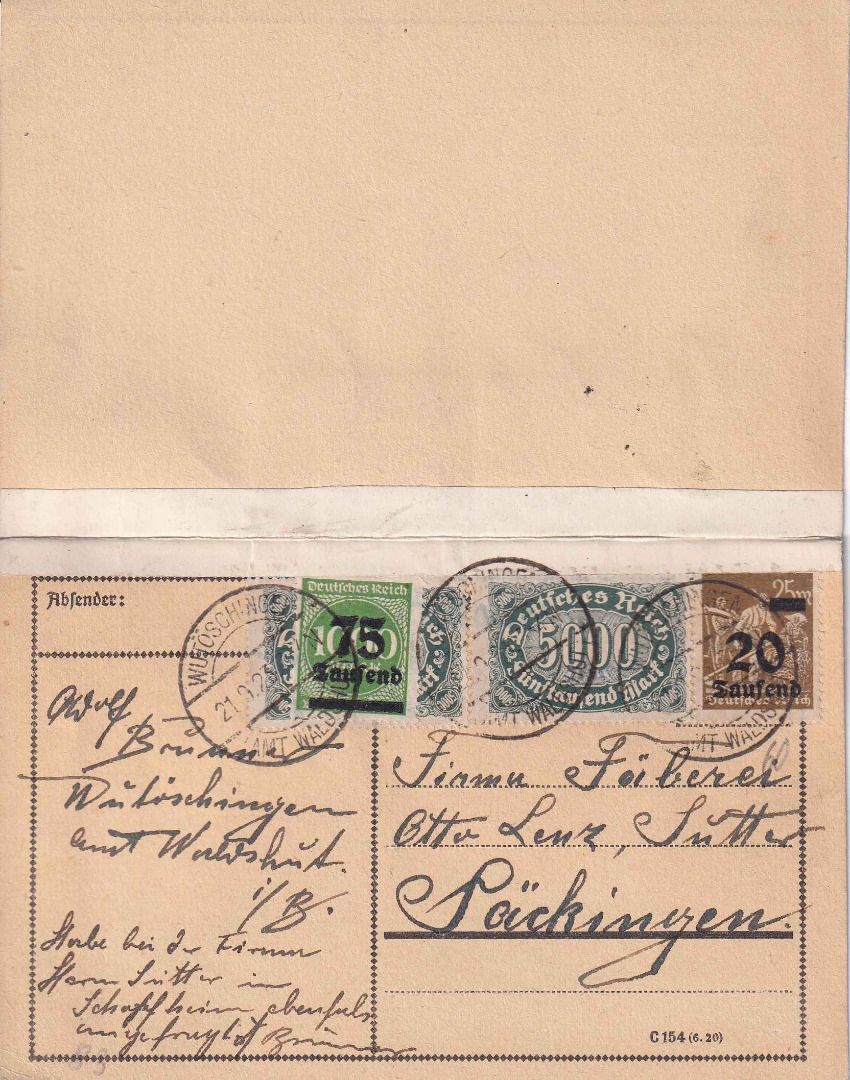 Absender:
Deutsches Reich
75
Tausend
WUTÖSCHINGEN
21.9.23
AMT WALDSHUT
Deutsches Reich
5000
Fünftausend Mark
25
20
Tausend
Deutsches Reich
AMT WALDS
Adolf
Brunner
Wutöschingen
Amt Waldshut.
i/B.
Habe bei der Firma
Herrn Sutter in
Schopfheim ebenfals
angefragt Brunner
60
Firma Färberei
Otto Lenz, Sutter
Säckingen.
C 154 (6. 20)